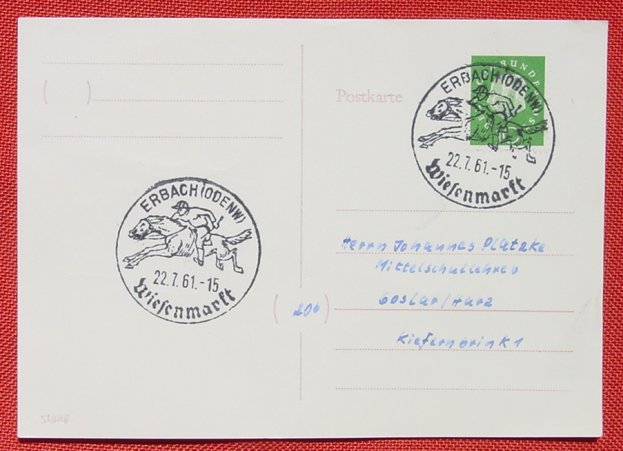 BUNDE
Postkarte
ERBACH (ODENW)
22.7.61.-15
Wiesenmarkt
ERBACH (ODENW)
22.7.61.-15
Wiesenmarkt
Herrn Johannes Platzke
Mittelschullehrer
(20b) Goslar/Harz
Kiefernbrink 1